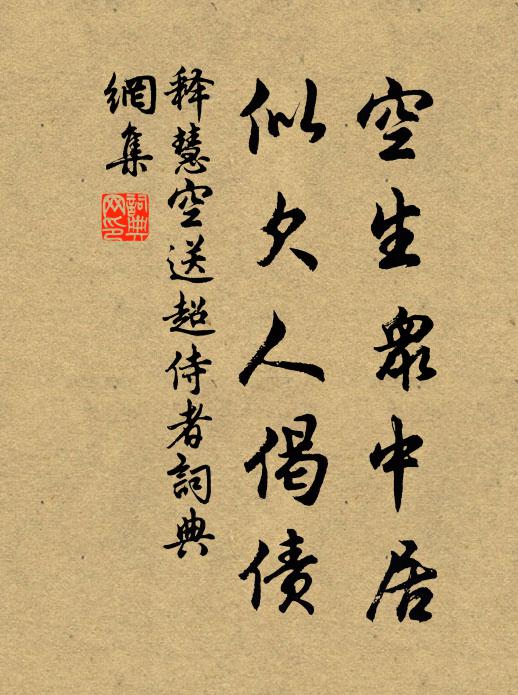 空生眾中居
似欠人偈债
释慧空送超侍者詞典
網集
詞典網印